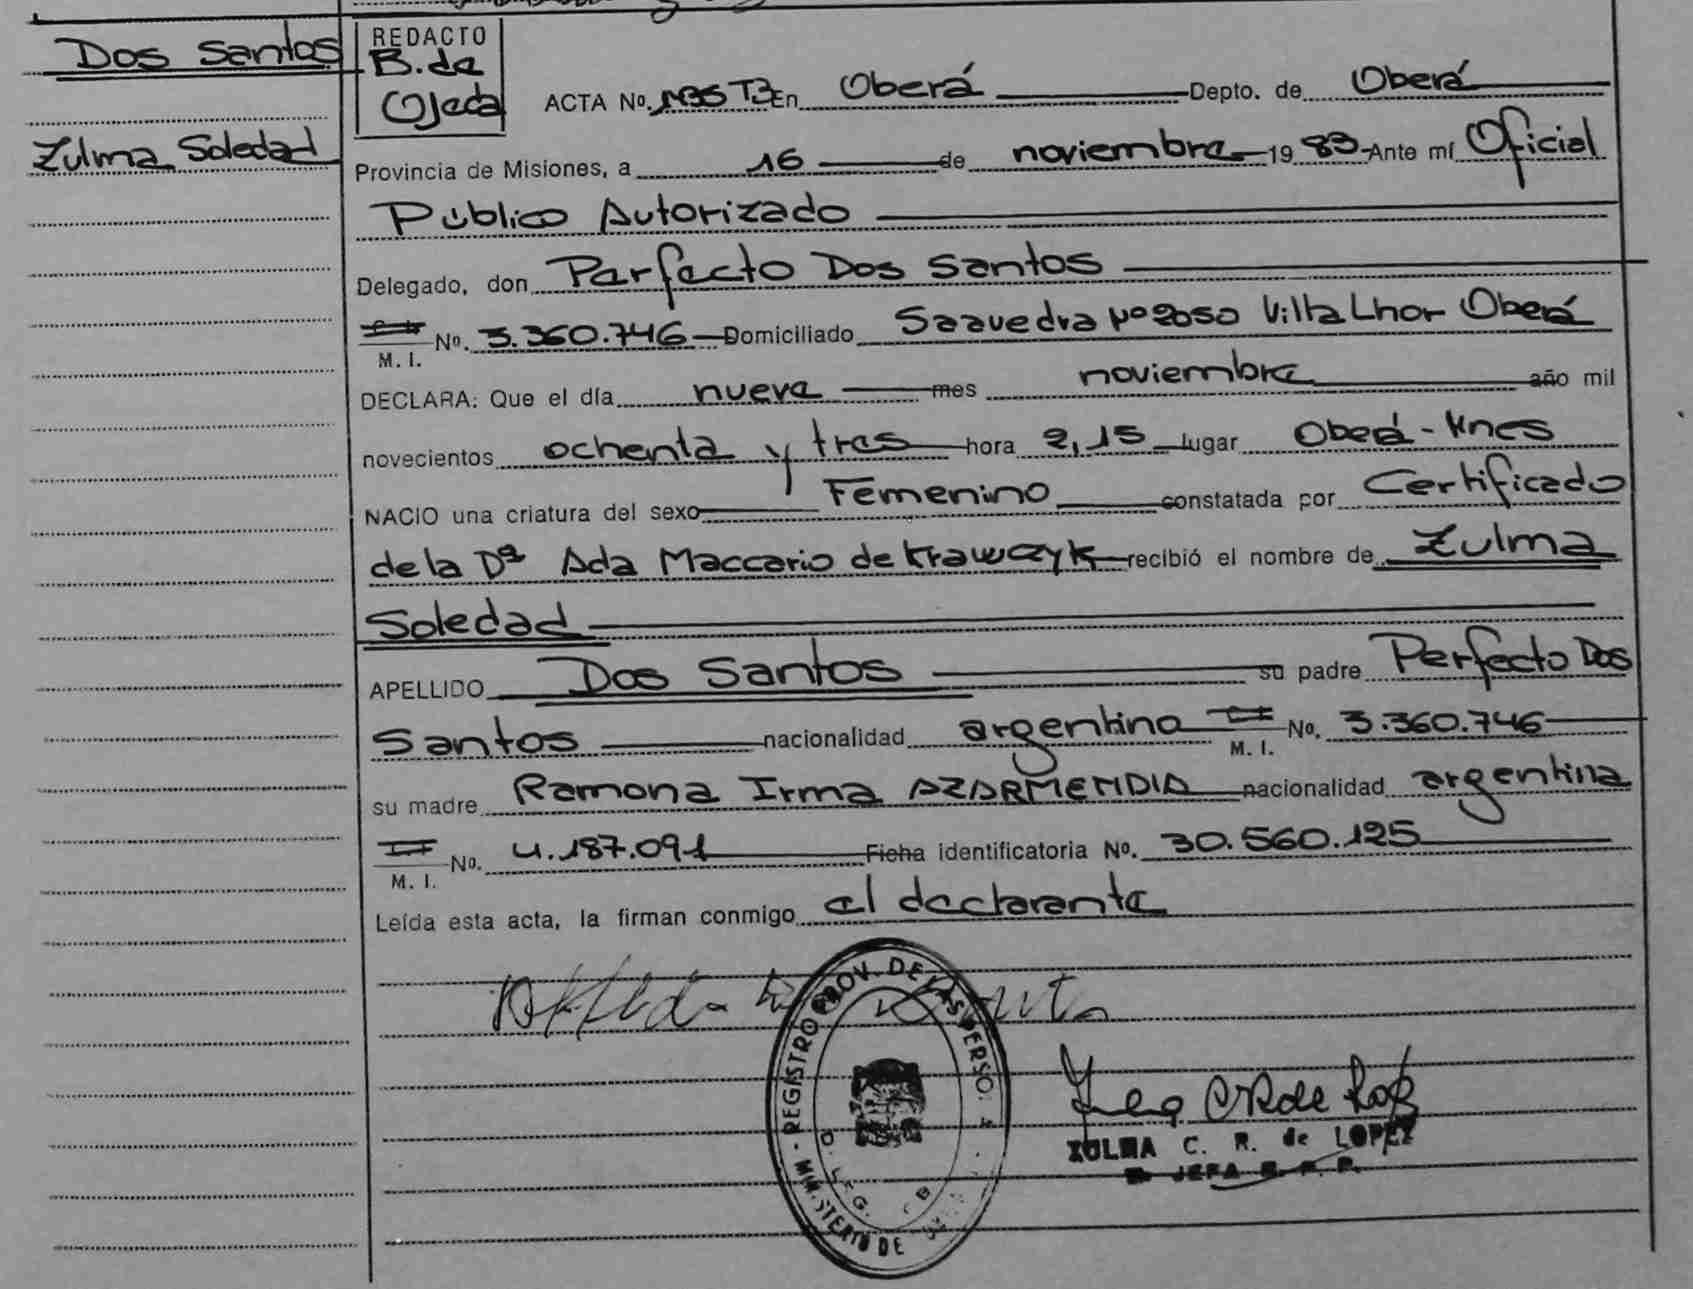 Dos Santos
Zulma Soledad
REDACTO
B. de
Ojeda
ACTA No. 1135 T3 En Oberá Depto. de Oberá
Provincia de Misiones, a 16 de noviembre 19 83 Ante mí Oficial
Público Autorizado
Delegado, don Perfecto Dos Santos
No. 3.360.746 Domiciliado Saavedra Nº 2050 Villa Lhor Oberá
M. I.
DECLARA: Que el día nueve mes noviembre año mil
novecientos ochenta y tres hora 2,15 lugar Oberá - Mnes
NACIO una criatura del sexo Femenino constatada por Certificado
de la Dª Ada Maccario de Krawczyk recibió el nombre de Zulma
Soledad
APELLIDO Dos Santos su padre Perfecto Dos
Santos nacionalidad argentina M. I. No. 3.360.746
su madre Ramona Irma AZARMENDIA nacionalidad argentina
M. I. No. 4.187.091 Ficha identificatoria No. 30.560.125
Leída esta acta, la firman conmigo el declarante
REGISTRO PROV. DE LAS PERSO
MINISTERIO DE
ZULMA C. R. de LOPEZ
JEFA